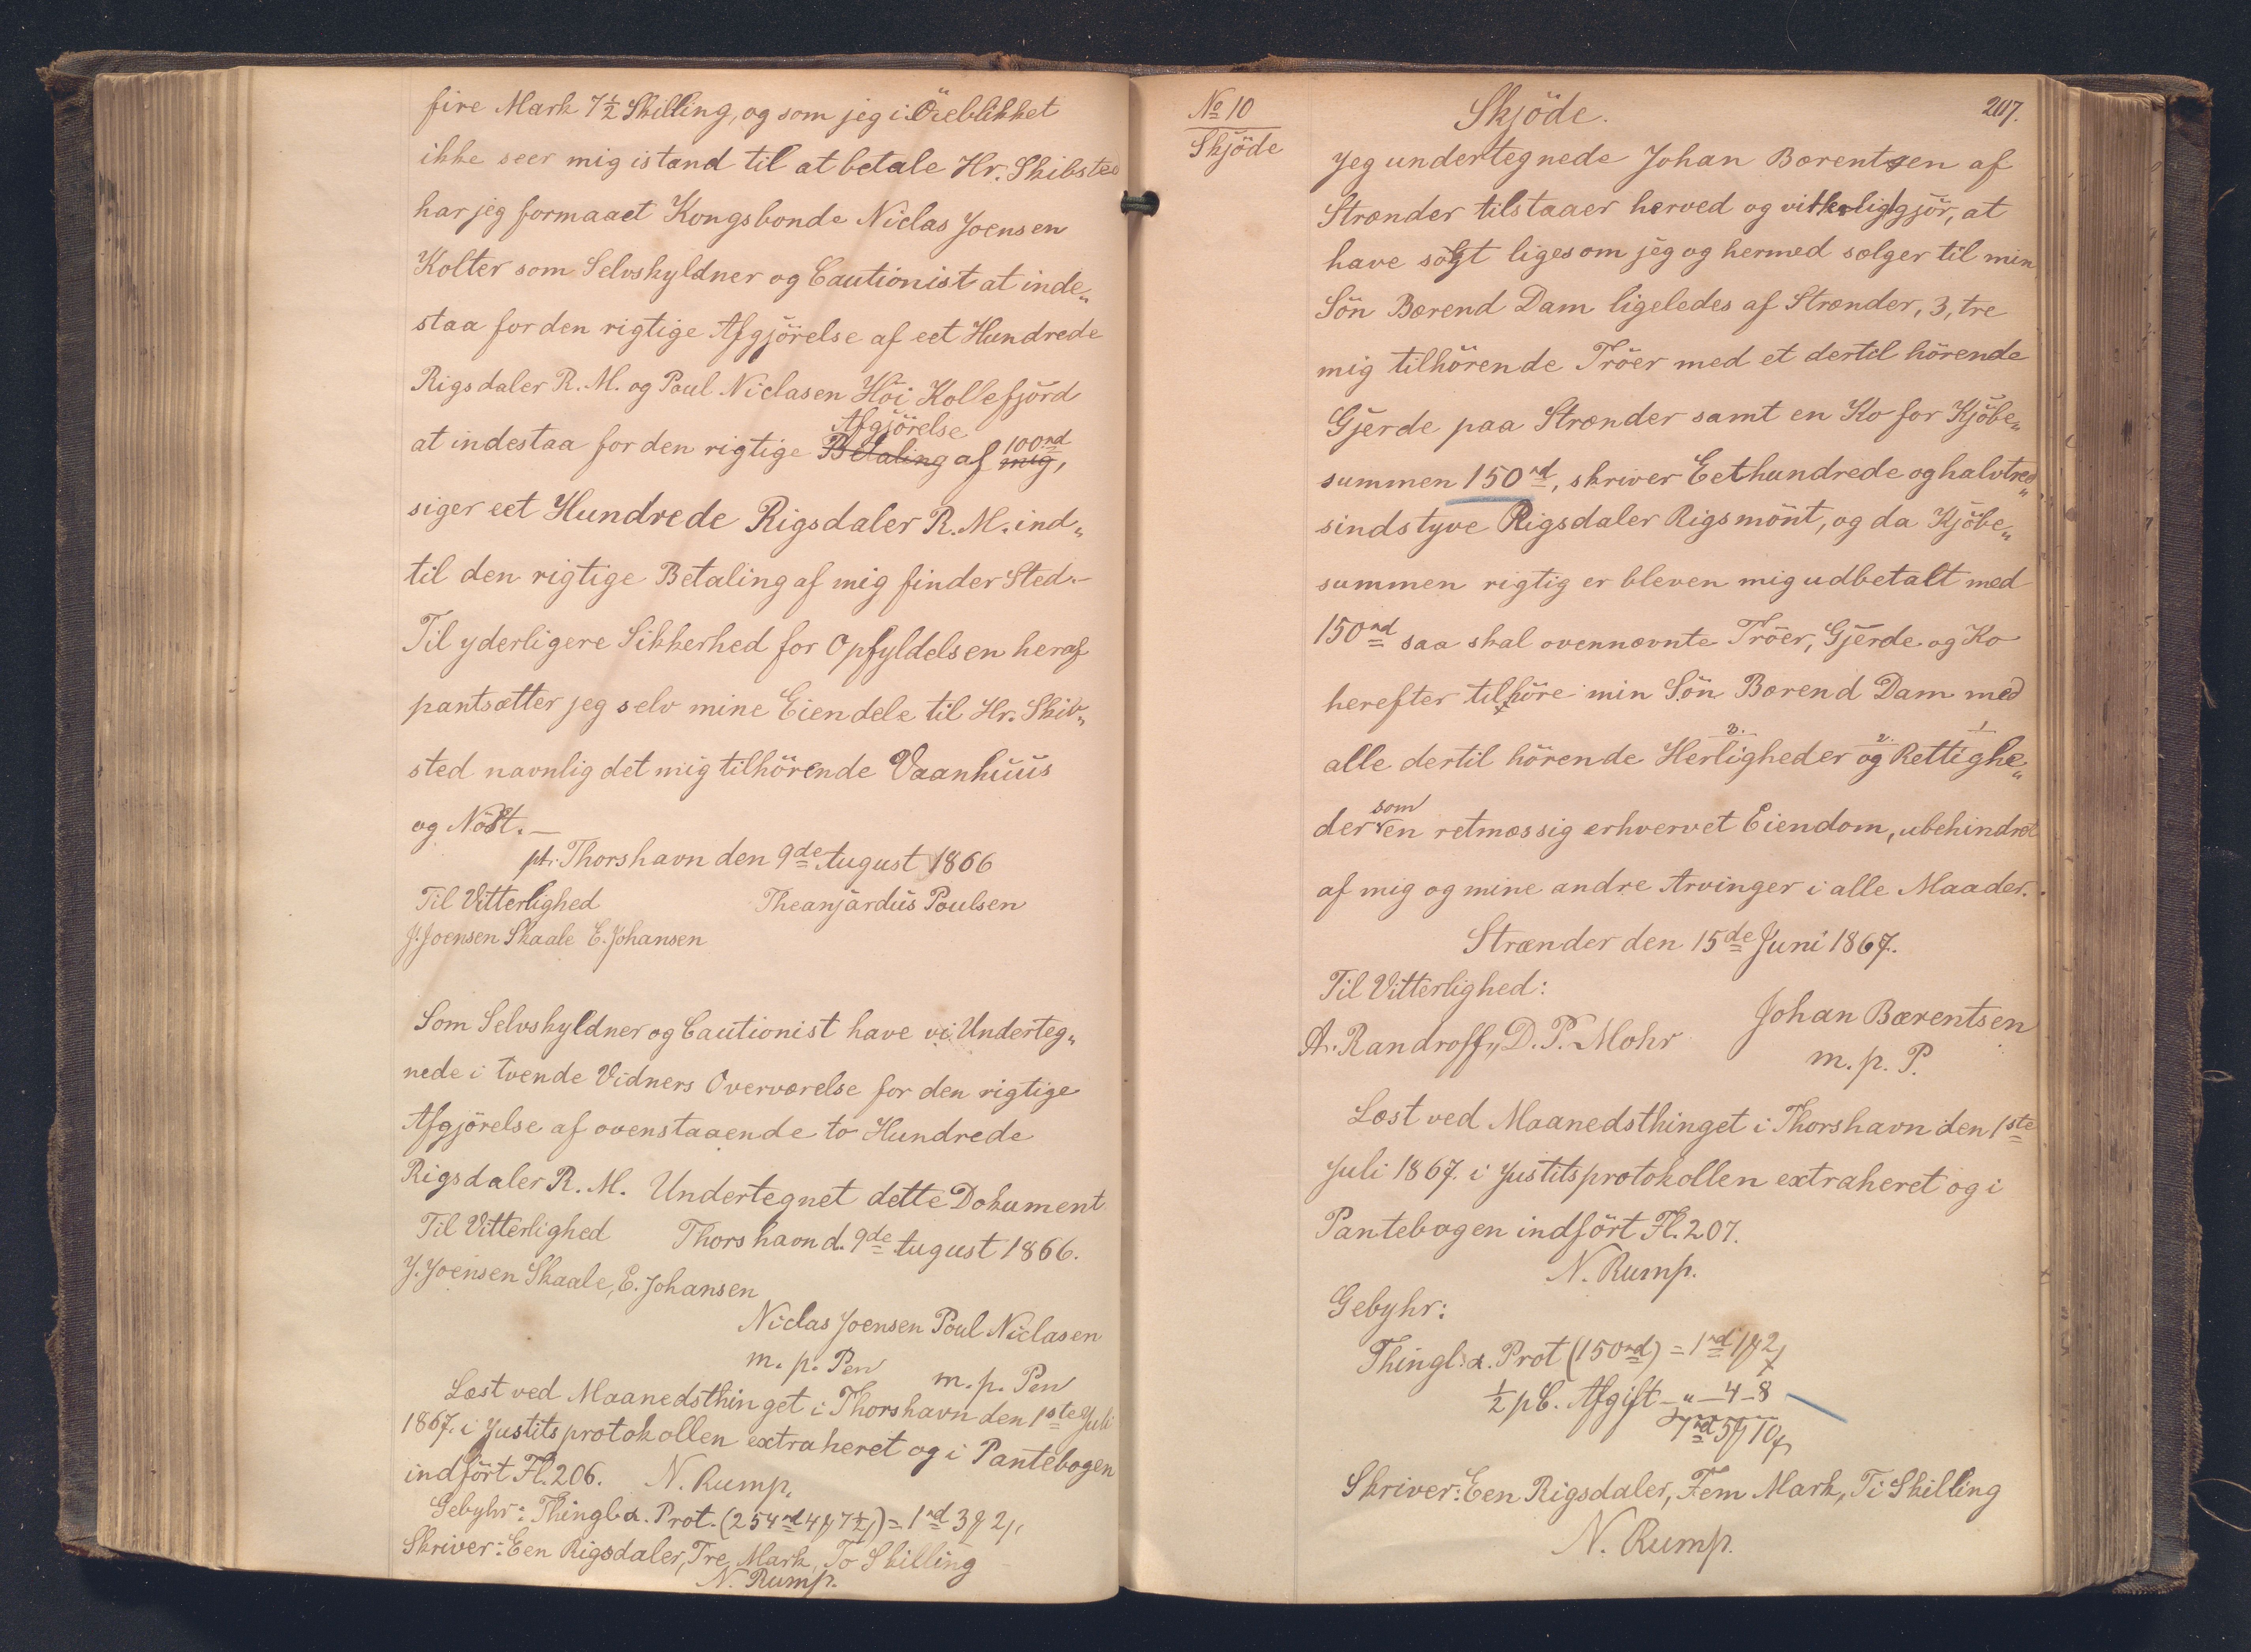 fire Mark 7½ Skilling, og som jeg i Öieblikket
ikke seer mig istand til at betale Hr. Skibsted
har jeg formaaet Kongsbonde Niclas Joensen
Kolter som Selvskyldner og Cautionist at inde„
staa for den rigtige Afgjörelse af eet Hundrede
Rigsdaler R. M. og Poul Niclasen Höi Kollefjord
at indestaa for den rigtige Betaling Afgjörelse af mig 100rd,
siger eet Hundrede Rigsdaler R. M. ind„
til den rigtige Betaling af mig finder Sted.—
Til yderligere Sikkerhed for Opfyldelsen heraf
pantsætter jeg selv mine Eiendele til Hr. Skib„
sted navnlig det mig tilhörende Vaanhuus
og Nöst.—
pt. Thorshavn den 9de August 1866
Til Vitterlighed Theanjardus Poulsen
J. Joensen Skaale E. Johansen
Som Selvskyldner og Cautionist have vi Underteg„
nede i tvende Vidners Overværelse for den rigtige
Afgjörelse af ovenstaaende to Hundrede
Rigsdaler R. M. Undertegnet dette Dokument
Til Vitterlighed Thorshavn d. 9de August 1866.
J. Joensen Skaale, E. Johansen
Niclas Joensen Poul Niclasen
m. p. Pen m. p. Pen
Læst ved Maanedsthinget i Thorshavn den 1ste Juli
1867. i Justitsprotokollen extraheret og i Pantebogen
indfört Fl. 206. N. Rump.
Gebyhr: Thingl. & Prot. (254rd 4 ₻ 7½ ß) = 1rd 3 ₻ 2 ß
Skriver: Een Rigsdaler, Tre Mark, To Skilling
N. Rump.
No 10
Skjöde
Skjöde.
207.
Jeg undertegnede Johan Bærentsen af
Strænder tilstaaer herved og vitterliggjör, at
have solgt ligesom jeg og hermed sælger til min
Sön Bærend Dam ligeledes af Strænder, 3, tre
mig tilhörende Tröer med et dertil hörende
Gjerde paa Strænder samt en Ko for Kjöbe„
summen 150rd, skriver Eethundrede og halvtred„
sindstyve Rigsdaler Rigsmönt, og da Kjöbe„
summen rigtig er bleven mig udbetalt med
150rd saa skal ovennævnte Tröer, Gjerde og Ko
herefter tilhöre min Sön Bærend Dam med
alle dertil hörende Herligheder 3. og 2. Rettighe„ 1
der som en retmæssig erhvervet Eiendom, ubehindret
af mig og mine andre Arvinger i alle Maader.
Strænder den 15de Juni 1867.
Til Vitterlighed:
Johan Bærentsen
A. Randroff, D. P. Mohr
m. p. P.
Læst ved Maanedsthinget i Thorshavn den 1ste
Juli 1867. i Justitsprotokollen extraheret og i
Pantebogen indfört Fl. 207.
N. Rump.
Gebyhr:
Thingl. & Prot (150rd) = 1rd 1 ₻ 2 ß
½ pC. Afgift — „ — 4 — 8
1rd 5 ₻ 10 ß
Skriver: Een Rigsdaler, Fem Mark, Ti Skilling
N. Rump.